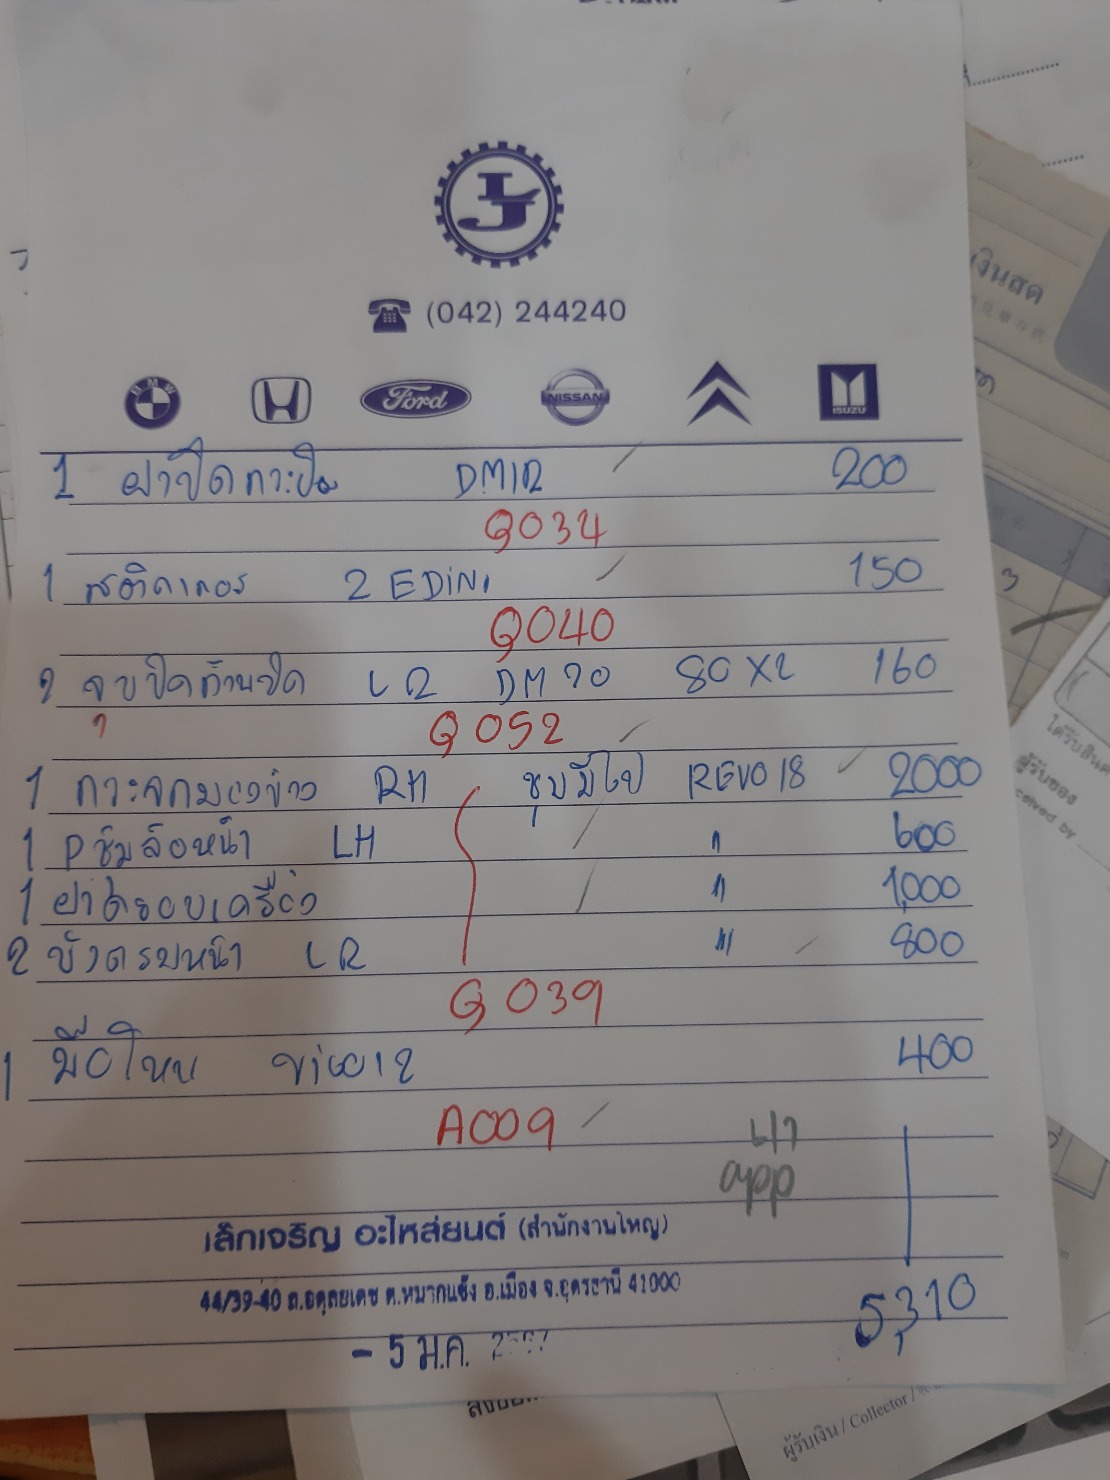 LJ
(042) 244240
BMW
Ford
NISSAN
ISUZU
1 ฝาปิดกะบะ DM12 200
Q034
1 สติกเกอร์ 2 EDiNi 150
Q040
2 ปิด LR DM 80 X2 160
Q052
1 กระจกมองข้าง RH ชุบมีไฟ REVO 18 2000
1 Pซุ้มล้อหน้า LH " 600
1 ฝาครอบเครื่อง " 1,000
2 บังลมหน้า LR " 800
Q039
1 มือโหน 400
A009
app
เล็กเจริญ อะไหล่ยนต์ (สำนักงานใหญ่)
44/39-40 ถ.อดุลยเดช ต.หมากแข้ง อ.เมือง จ.อุดรธานี 41000
5,310
- 5 ม.ค.
เงินสด
3
ได้รับสินค้า
ผู้รับของ
ceived by
ผู้รับเงิน / Collector /